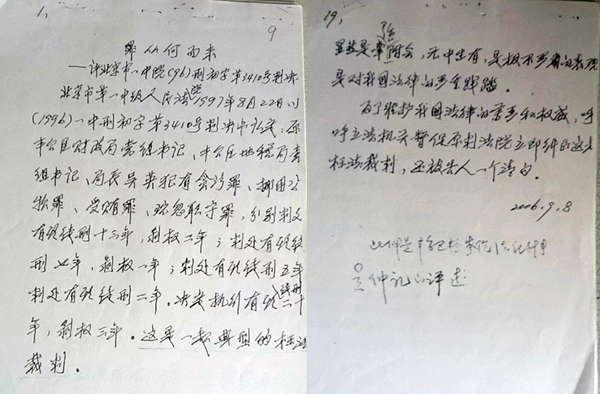 1、
9
罪从何而来
——评北京市一中院(96)刑初字第3410号判决
北京市第一中级人民法院1997年8月22日以
(1996)一中刑初字第3410号判决书认定,原
丰台区财政局党组书记、丰台区地税局党
组书记、局长吴英犯有贪污罪、挪用公
款罪、受贿罪、玩忽职守罪,分别判处
有期徒刑十三年,剥权二年;判处有期徒
刑七年,剥权一年;判处有期徒刑五年
判处有期徒刑二年。决定执行有期徒刑二十
年,剥权三年。这是一款典型的枉法
裁判。
19、
是牵强附会,无中生有,是极不严肃的表现
是对我国法律的严重践踏。
为了维护我国法律的尊严和权威,呼
呼立法机关督促原判法院立即纠正这
枉法裁判,还被告人一个清白。
2006.9.8